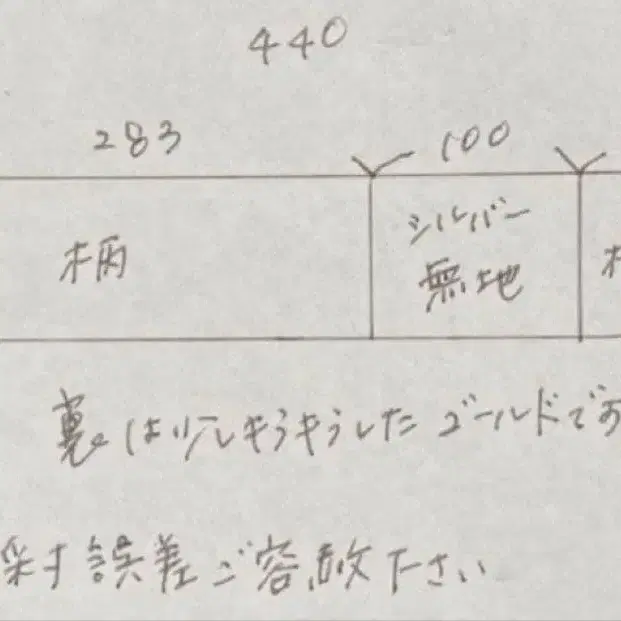 440
283 100
柄 シルバー
無地
裏は少しキラキラした ゴールドです
採寸誤差ご容赦下さい